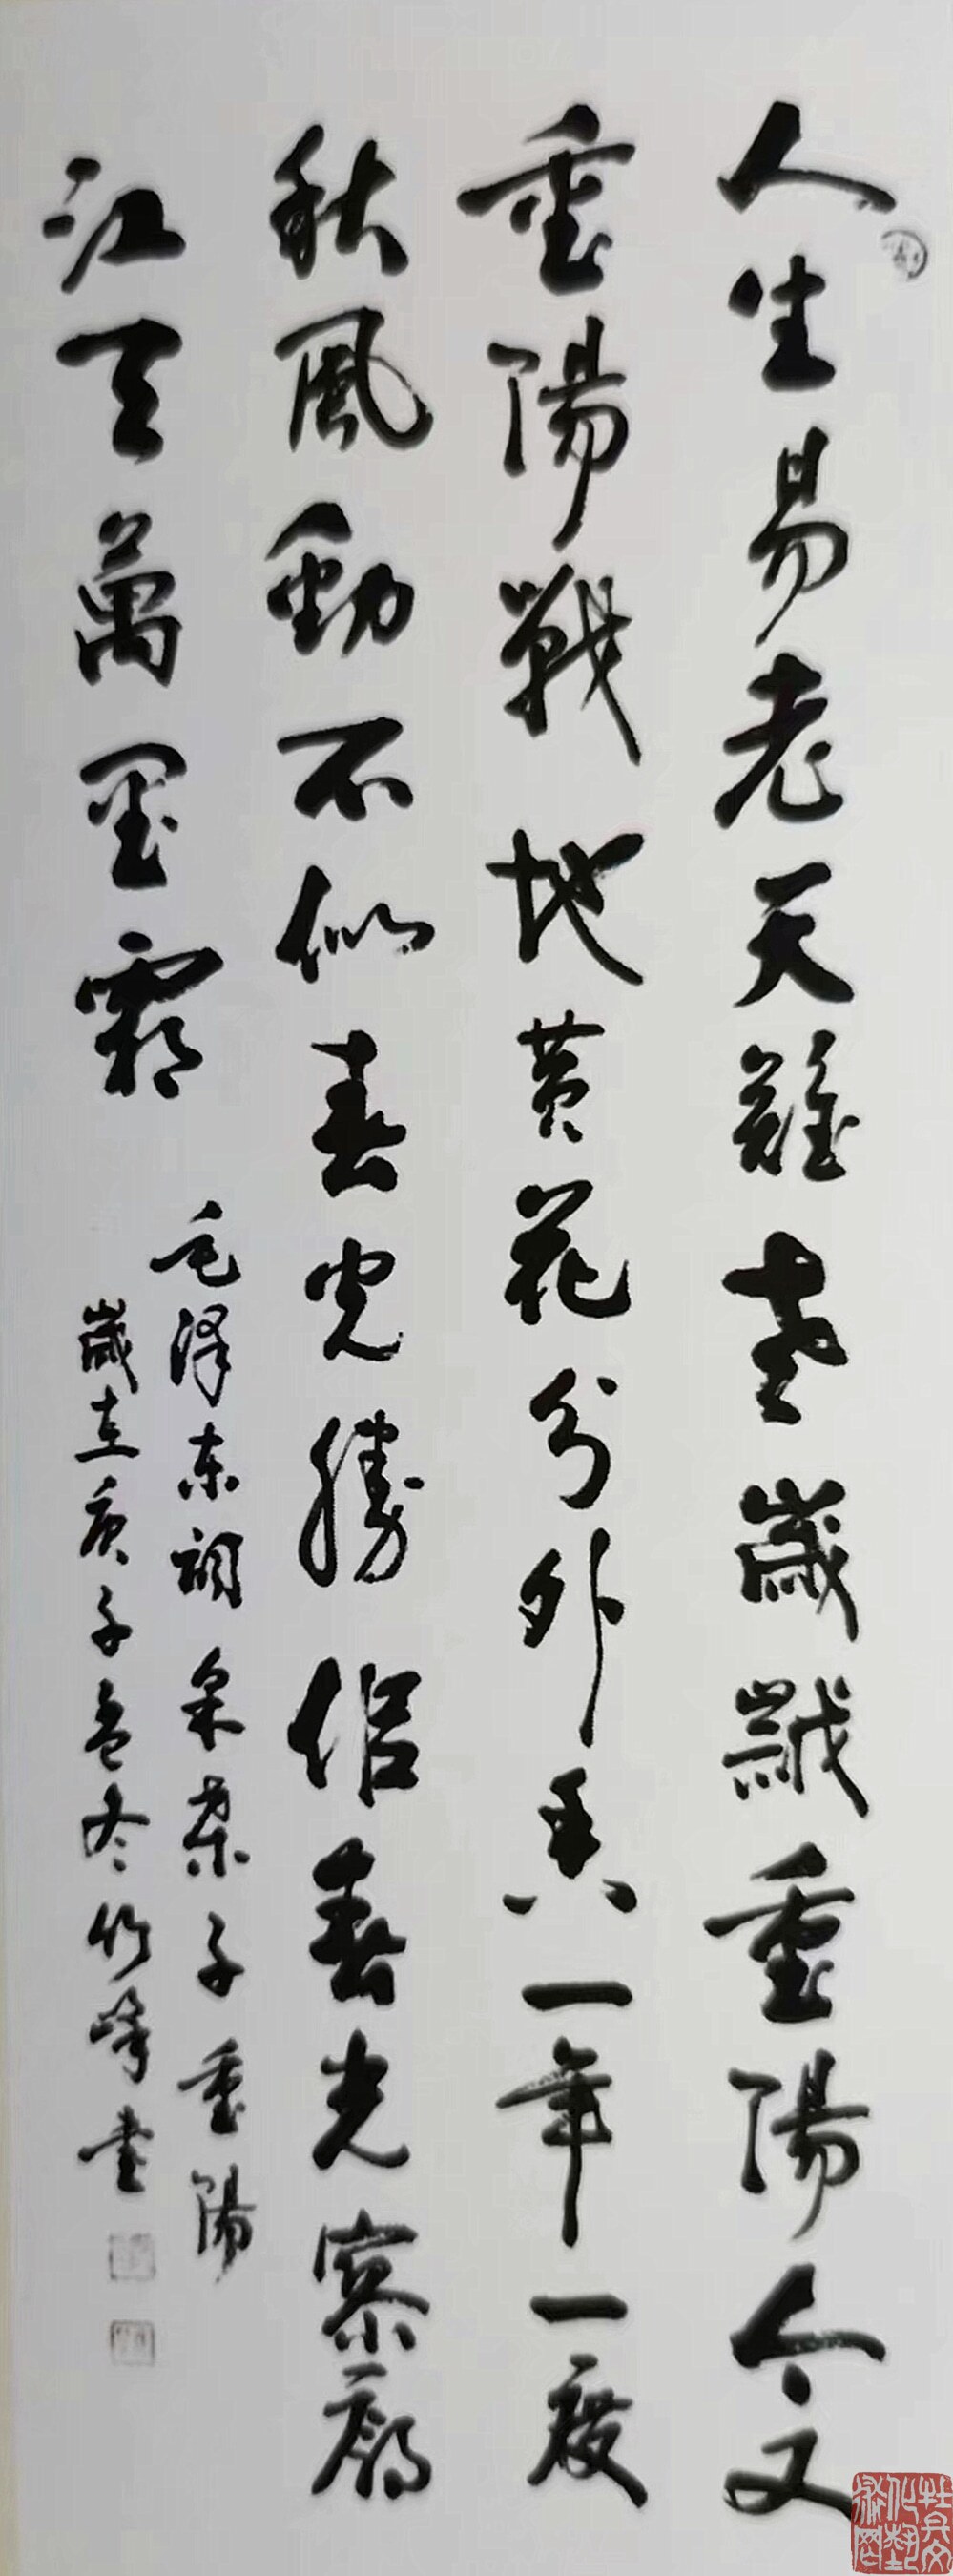 人生易老天難老歲歲重陽今又
重陽戰地黄花分外香一年一度
秋風勁不似春光勝佀春光寥廓
江天萬里霜
毛泽东詞采桑子重陽
歲在庚子孟冬竹峰書